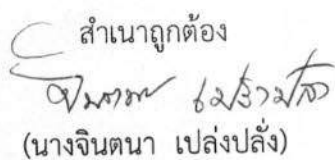 สำเนาถูกต้อง
(นางจินตนา เปล่งปลั่ง)